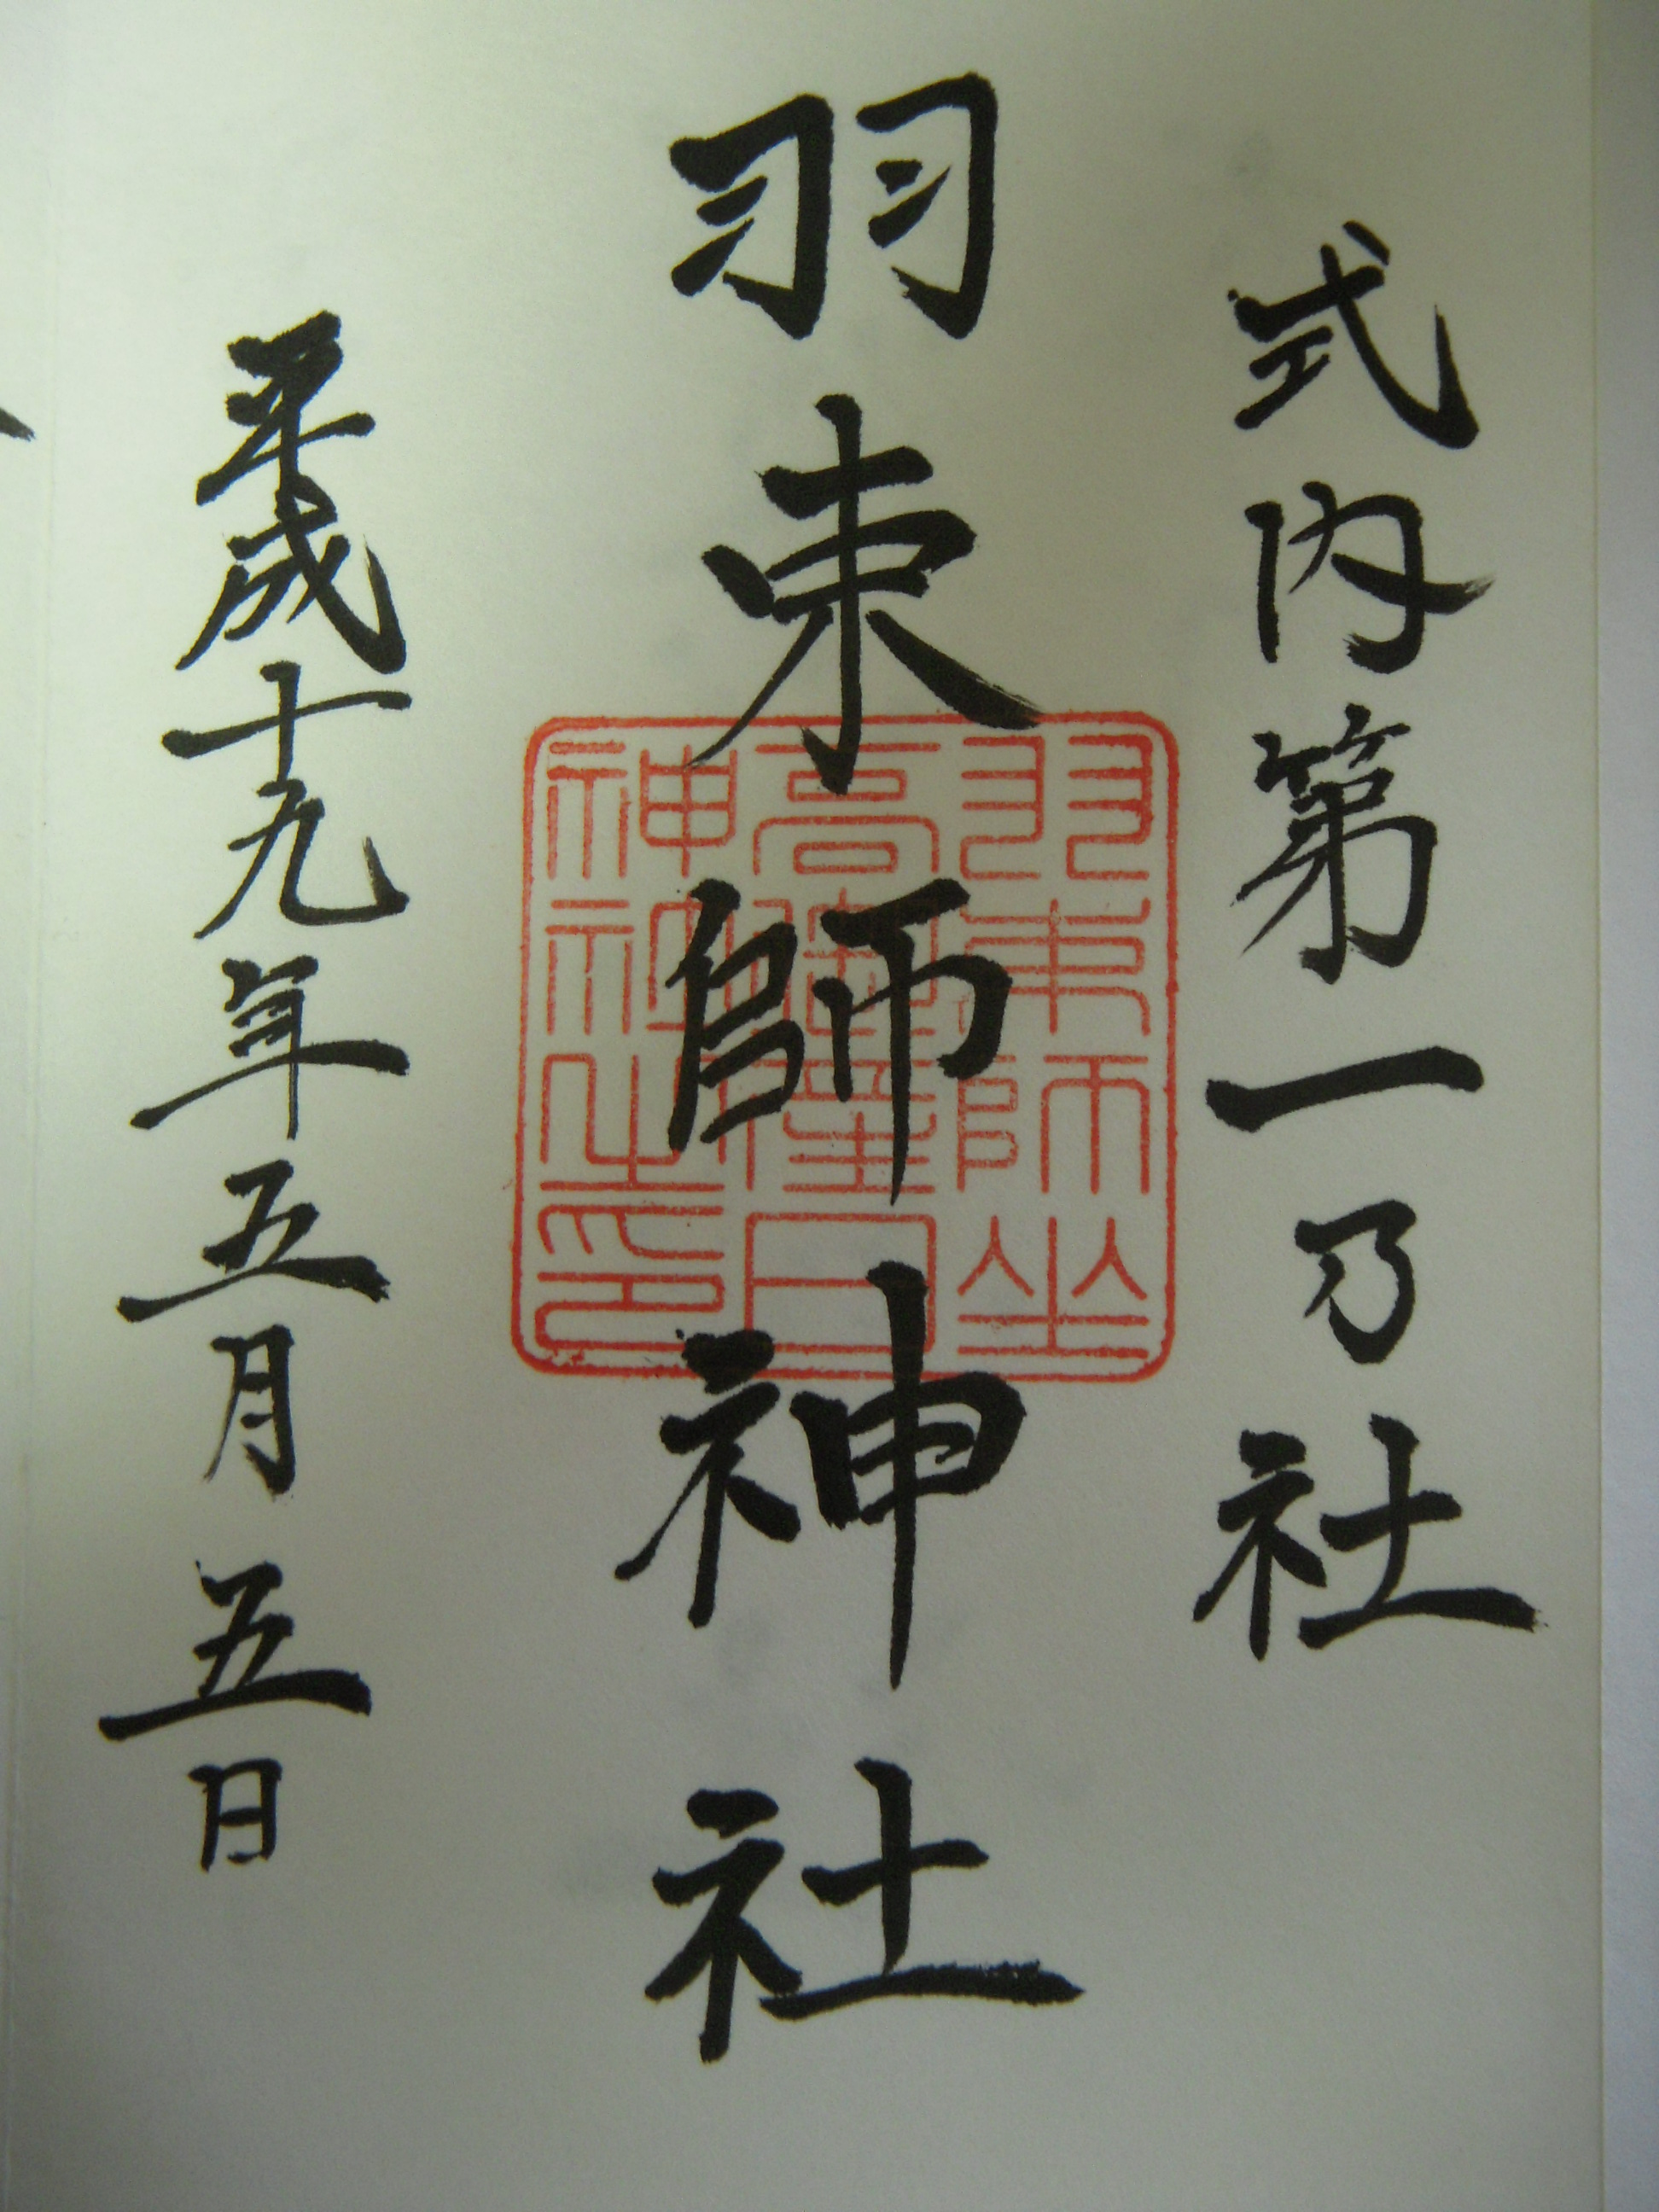 式内第一乃社
羽束師神社
羽束師坐
高御産日
神社之印
平成十九年五月五日